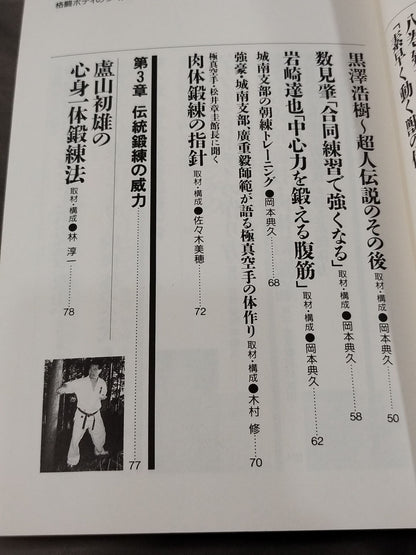 格闘ボディの
「素早く動
黒澤浩樹〜超人伝説のその後 取材・構成●岡本典久……50
数見肇「合同練習で強くなる」 取材・構成●岡本典久……58
岩崎達也「中心力を鍛える腹筋」 取材・構成●岡本典久……62
城南支部の朝練トレーニング●岡本典久……68
強豪・城南支部・廣重毅師範が語る極真空手の体作り 取材・構成●木村 修……70
極真空手・松井章圭館長に聞く
肉体鍛練の指針 取材・構成●佐々木美穂……72
第3章 伝統鍛練の威力……77
盧山初雄の
心身一体鍛練法 取材・構成●林 淳一……78